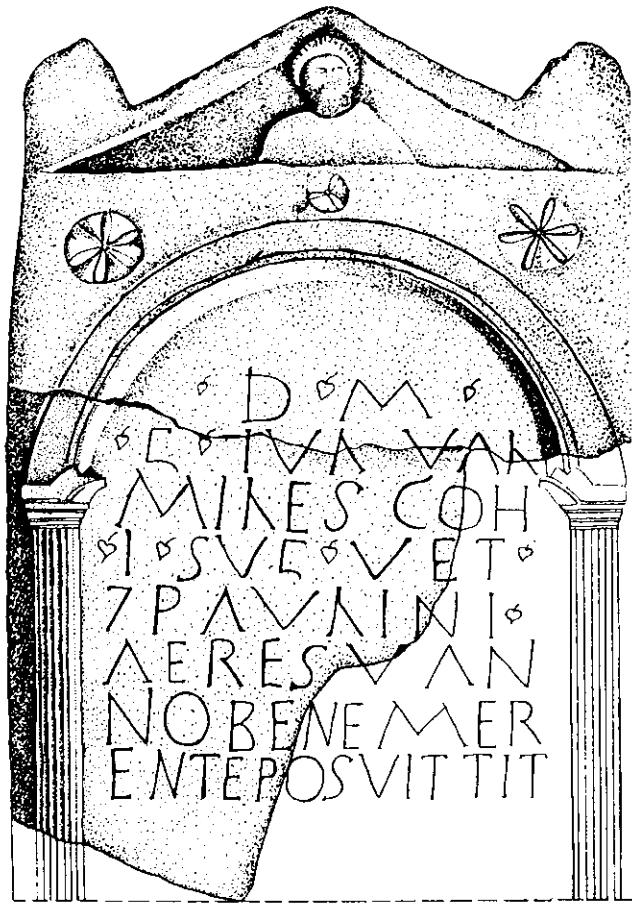 · D · M ·
· G · IVL VAL
MILES COH
· I · SVG · VET ·
7 PAVLINI ·
AERES VAN
NO BENEMER
ENTE POSVIT TIT